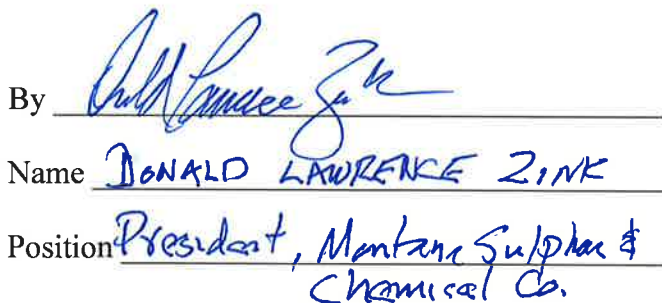 By Donald Lawrence Zink
Name DONALD LAWRENCE ZINK
Position President, Montana Sulphur &
Chemical Co.